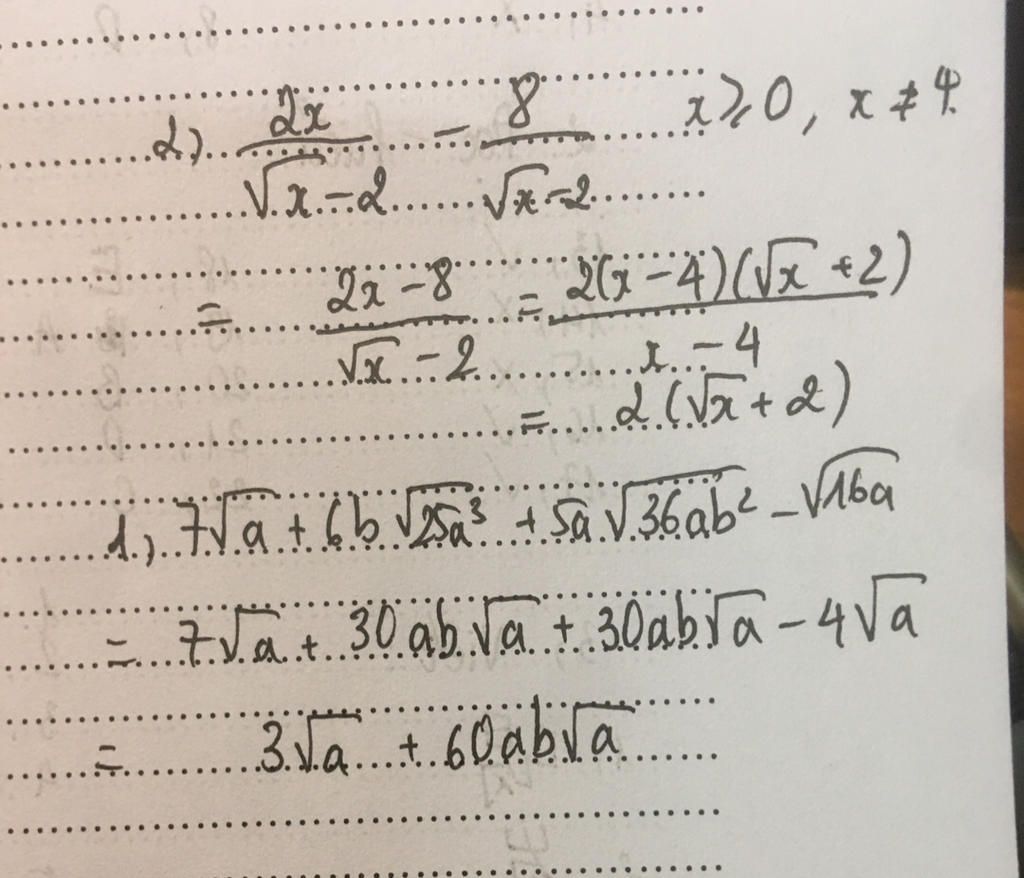 2) 2x/(√x − 2) − 8/(√x − 2)   x ⩾ 0, x ≠ 4.
= (2x − 8)/(√x − 2) = 2(x − 4)(√x + 2)/(x − 4)
= 2(√x + 2)
1, 7√a + 6b√25a³ + 5a√36ab² − √16a
= 7√a + 30ab√a + 30ab√a − 4√a
= 3√a + 60ab√a